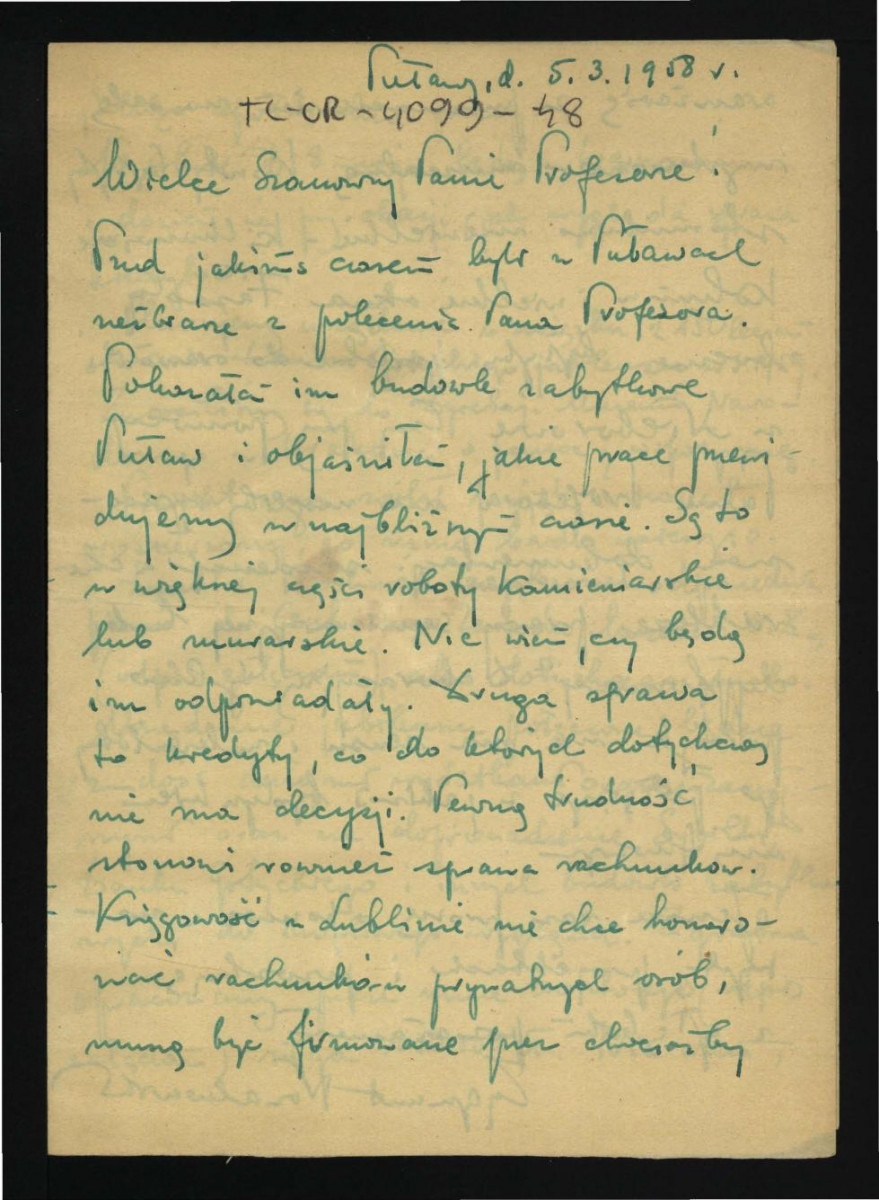 Puławy, d. 5.3.1958 r.
TL-OR-4099-48
Wielce Szanowny Panie Profesorze!
Przed jakimś czasem byli w Puławach
rzeźbiarze z polecenia Pana Profesora.
Pokazałem im budowle zabytkowe
Puław i objaśniłem, jakie prace przewi-
dujemy w najbliższym czasie. Są to
w większej części roboty kamieniarskie
lub murarskie. Nie wiem, czy będą
im odpowiadały. Druga sprawa
to kredyty, co do których dotychczas
nie ma decyzji. Pewną trudność
stanowi również sprawa rachunków.
Księgowość w Lublinie nie chce honoro-
wać rachunków prywatnych osób,
muszą być firmowane przez chociażby